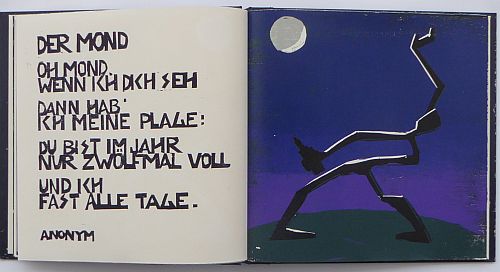 DER MOND
OH MOND,
WENN ICH DICH SEH
DANN HAB'
ICH MEINE PLAGE:
DU BIST IM JAHR
NUR ZWÖLFMAL VOLL
UND ICH
FAST ALLE TAGE.
ANONYM